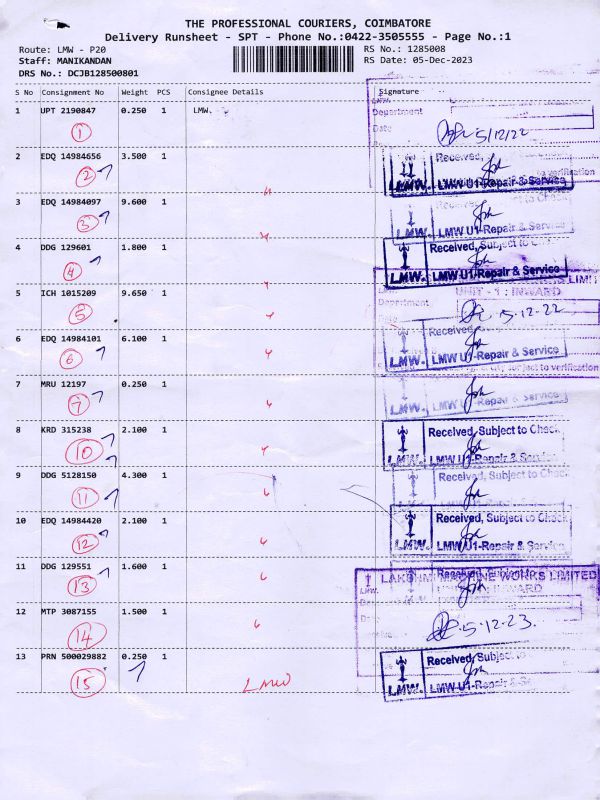 THE PROFESSIONAL COURIERS, COIMBATORE
Delivery Runsheet - SPT - Phone No.:0422-3505555 - Page No.:1
Route: LMW - P20 RS No.: 1285008
Staff: MANIKANDAN RS Date: 05-Dec-2023
DRS No.: DCJB128500801
S No Consignment No Weight PCS Consignee Details Signature
1 UPT 2190847 0.250 1 LMW.
Department
Date
1 5/12/22
2 EDQ 14984656 3.500 1 Received,
2 to verification
LMW. LMW U1-Repair & Service
3 EDQ 14984097 9.600 1
3 LMW U1-Repair & Service
4 DDG 129601 1.800 1 Received, Subject to
4 LMW. LMW U1-Repair & Service
5 ICH 1015209 9.650 1 UNIT - 1 : INWARD
Department
5 5-12-22
6 EDQ 14984101 6.100 1 Received
6 LMW. LMW U1-Repair & Service
subject to verification
7 MRU 12197 0.250 1
7 LMW. LMW U1-Repair & Service
8 KRD 315238 2.100 1 Received, Subject to Check
10 LMW. LMW U1-Repair & Service
9 DDG 5128150 4.300 1 Received, Subject to
11
10 EDQ 14984420 2.100 1 Received, Subject to Check
12 LMW. LMW U1-Repair & Service
11 DDG 129551 1.600 1
13 LAKSHMI MACHINE WORKS LIMITED
INWARD
12 MTP 3087155 1.500 1
14 5-12-23.
13 PRN 500029882 0.250 1 Received, Subject to
15 LMW LMW. LMW U1-Repair & Se